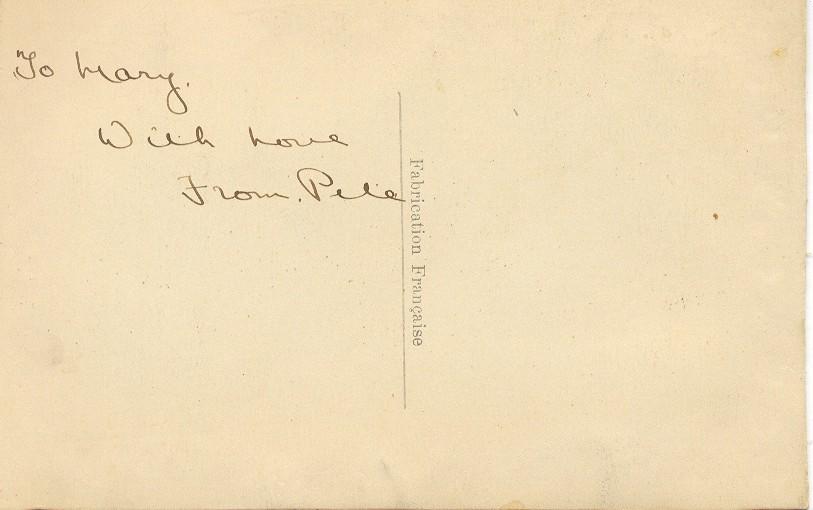 To Mary.
With Love
From. Pete
Fabrication Française